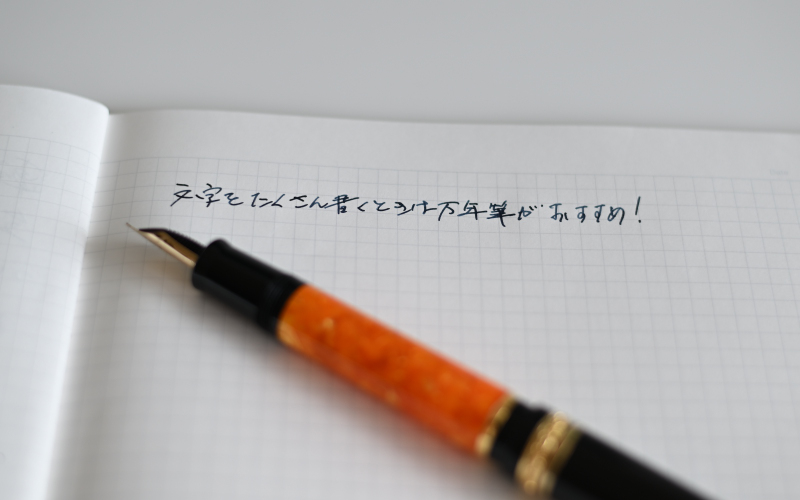 文字をたくさん書くときは万年筆がおすすめ!